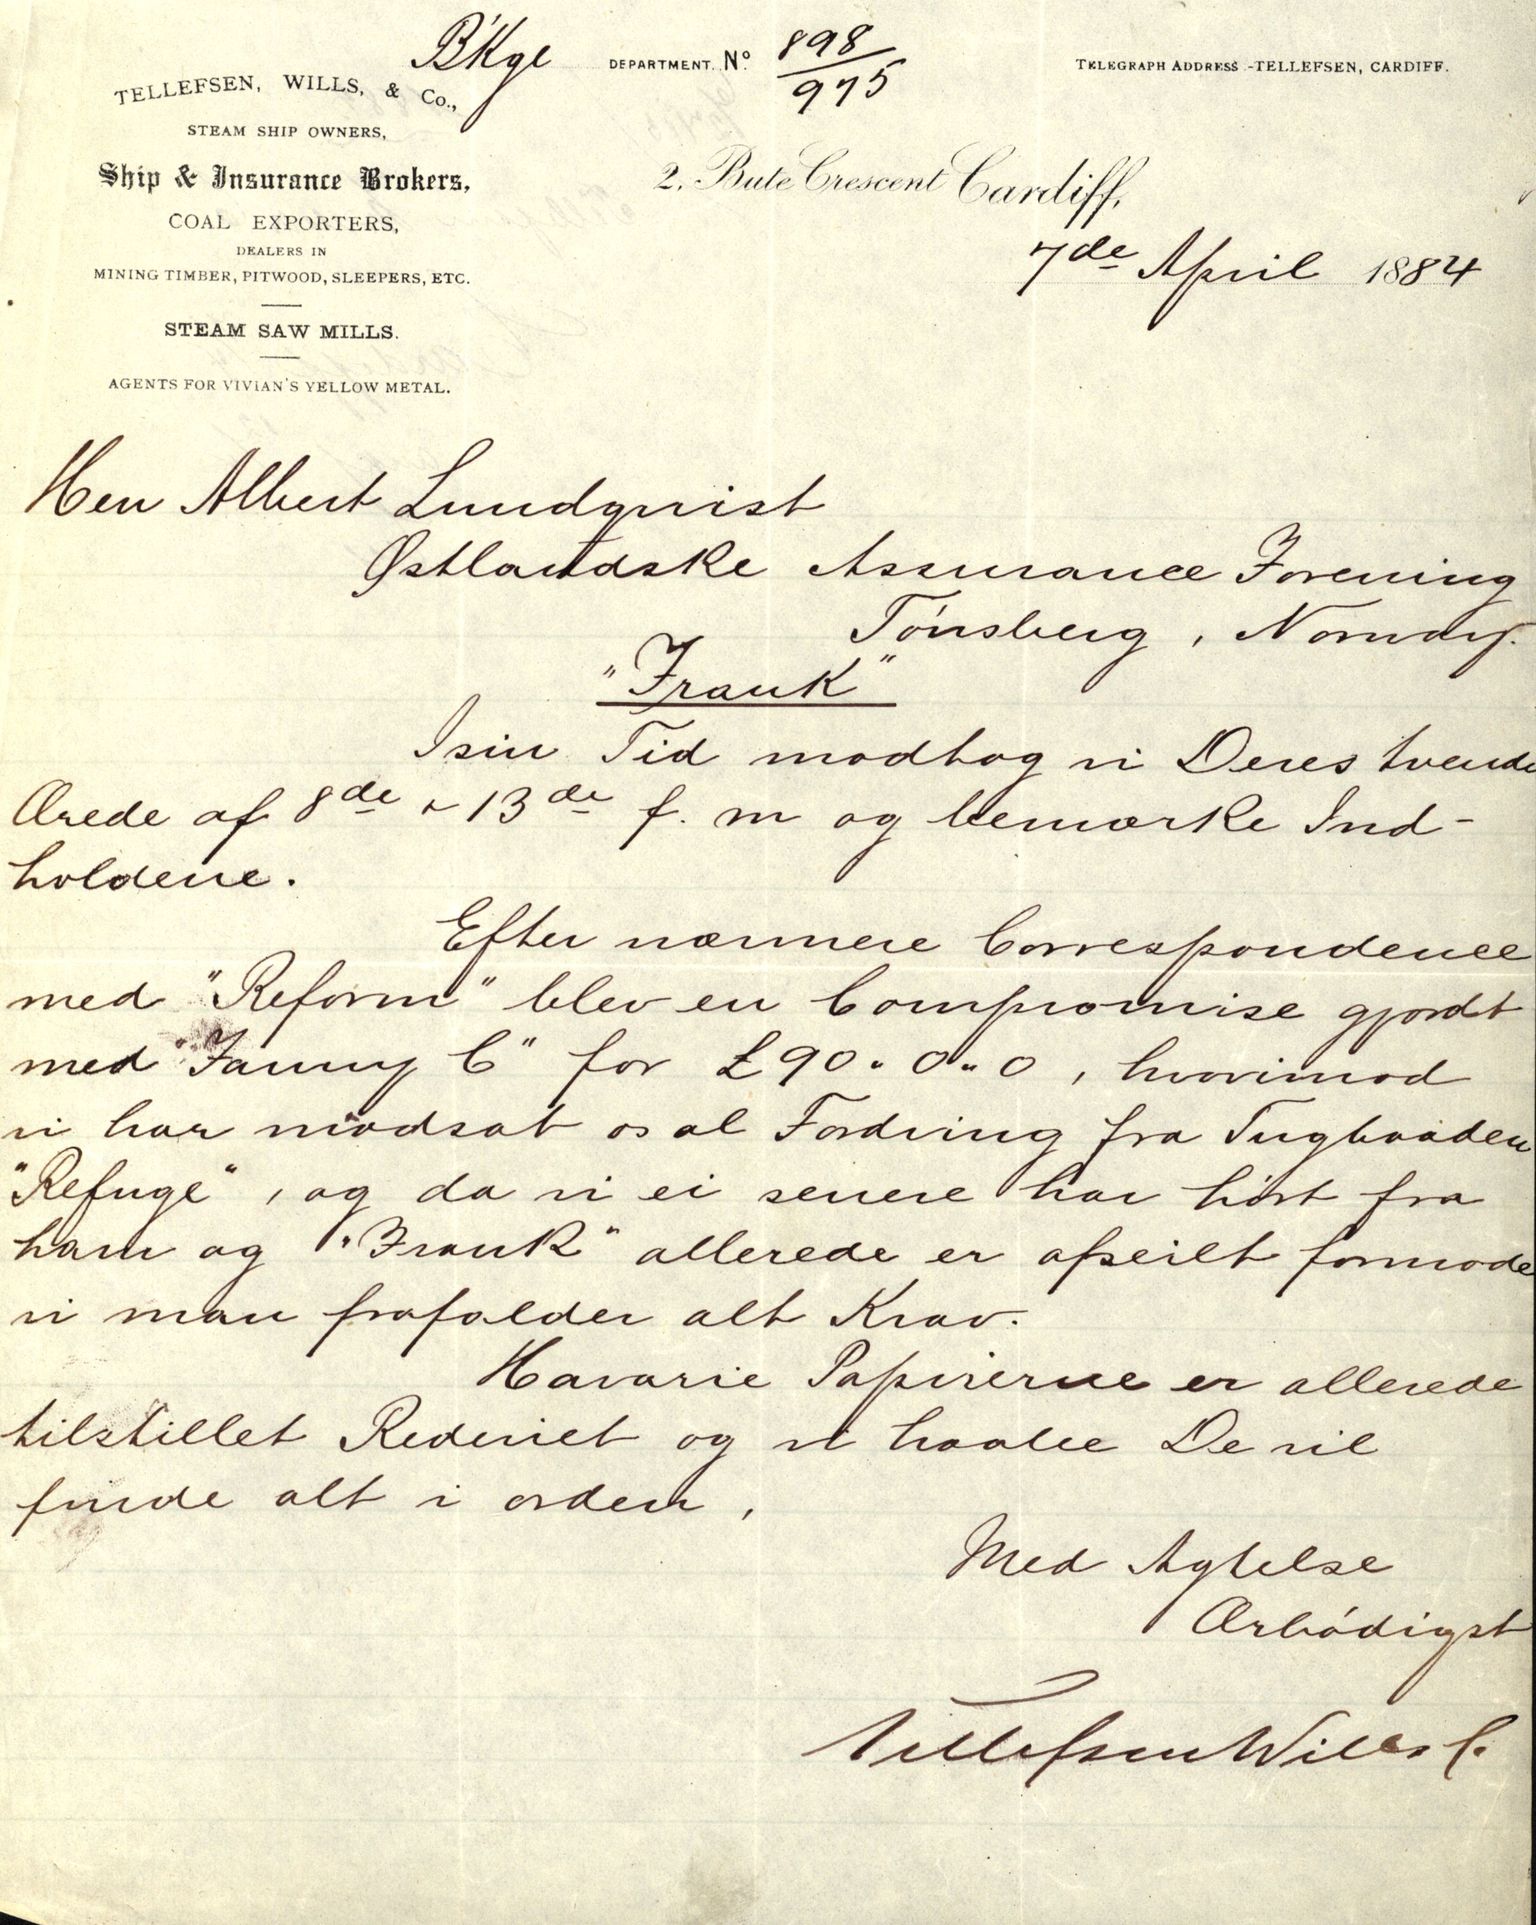 B'Kge DEPARTMENT. No. 898/975
TELEGRAPH ADDRESS - TELLEFSEN, CARDIFF.
TELLEFSEN, WILLS, & Co.,
STEAM SHIP OWNERS,
Ship & Insurance Brokers,
COAL EXPORTERS,
DEALERS IN
MINING TIMBER, PITWOOD, SLEEPERS, ETC.
STEAM SAW MILLS.
AGENTS FOR VIVIAN'S YELLOW METAL.
2, Bute Crescent Cardiff,
7de April 1884
Herr Albert Lundqvist
Østlandske Assurance Forening
Tønsberg, Norway.
"Frank"
Isin Tid modtog vi Deres tvende
Ærede af 8de & 13de f. m og bemærke Ind-
holdene.
Efter nærmere Correspondence
med "Reform" blev en Compromise gjordt
med "Fanny C" for £90.0.0, hvorimod
vi har modsat os al Fordring fra Tugbaaden
"Refuge", og da vi ei senere har hørt fra
ham og "Frank" allerede er afseilt formode
vi man frafalder alt Krav.
Havarie Papirerne er allerede
tilstillet Rederiet og vi haabe De vil
finde alt i orden,
Med Agtelse
Ærbødigst
Tellefsen Wills C.